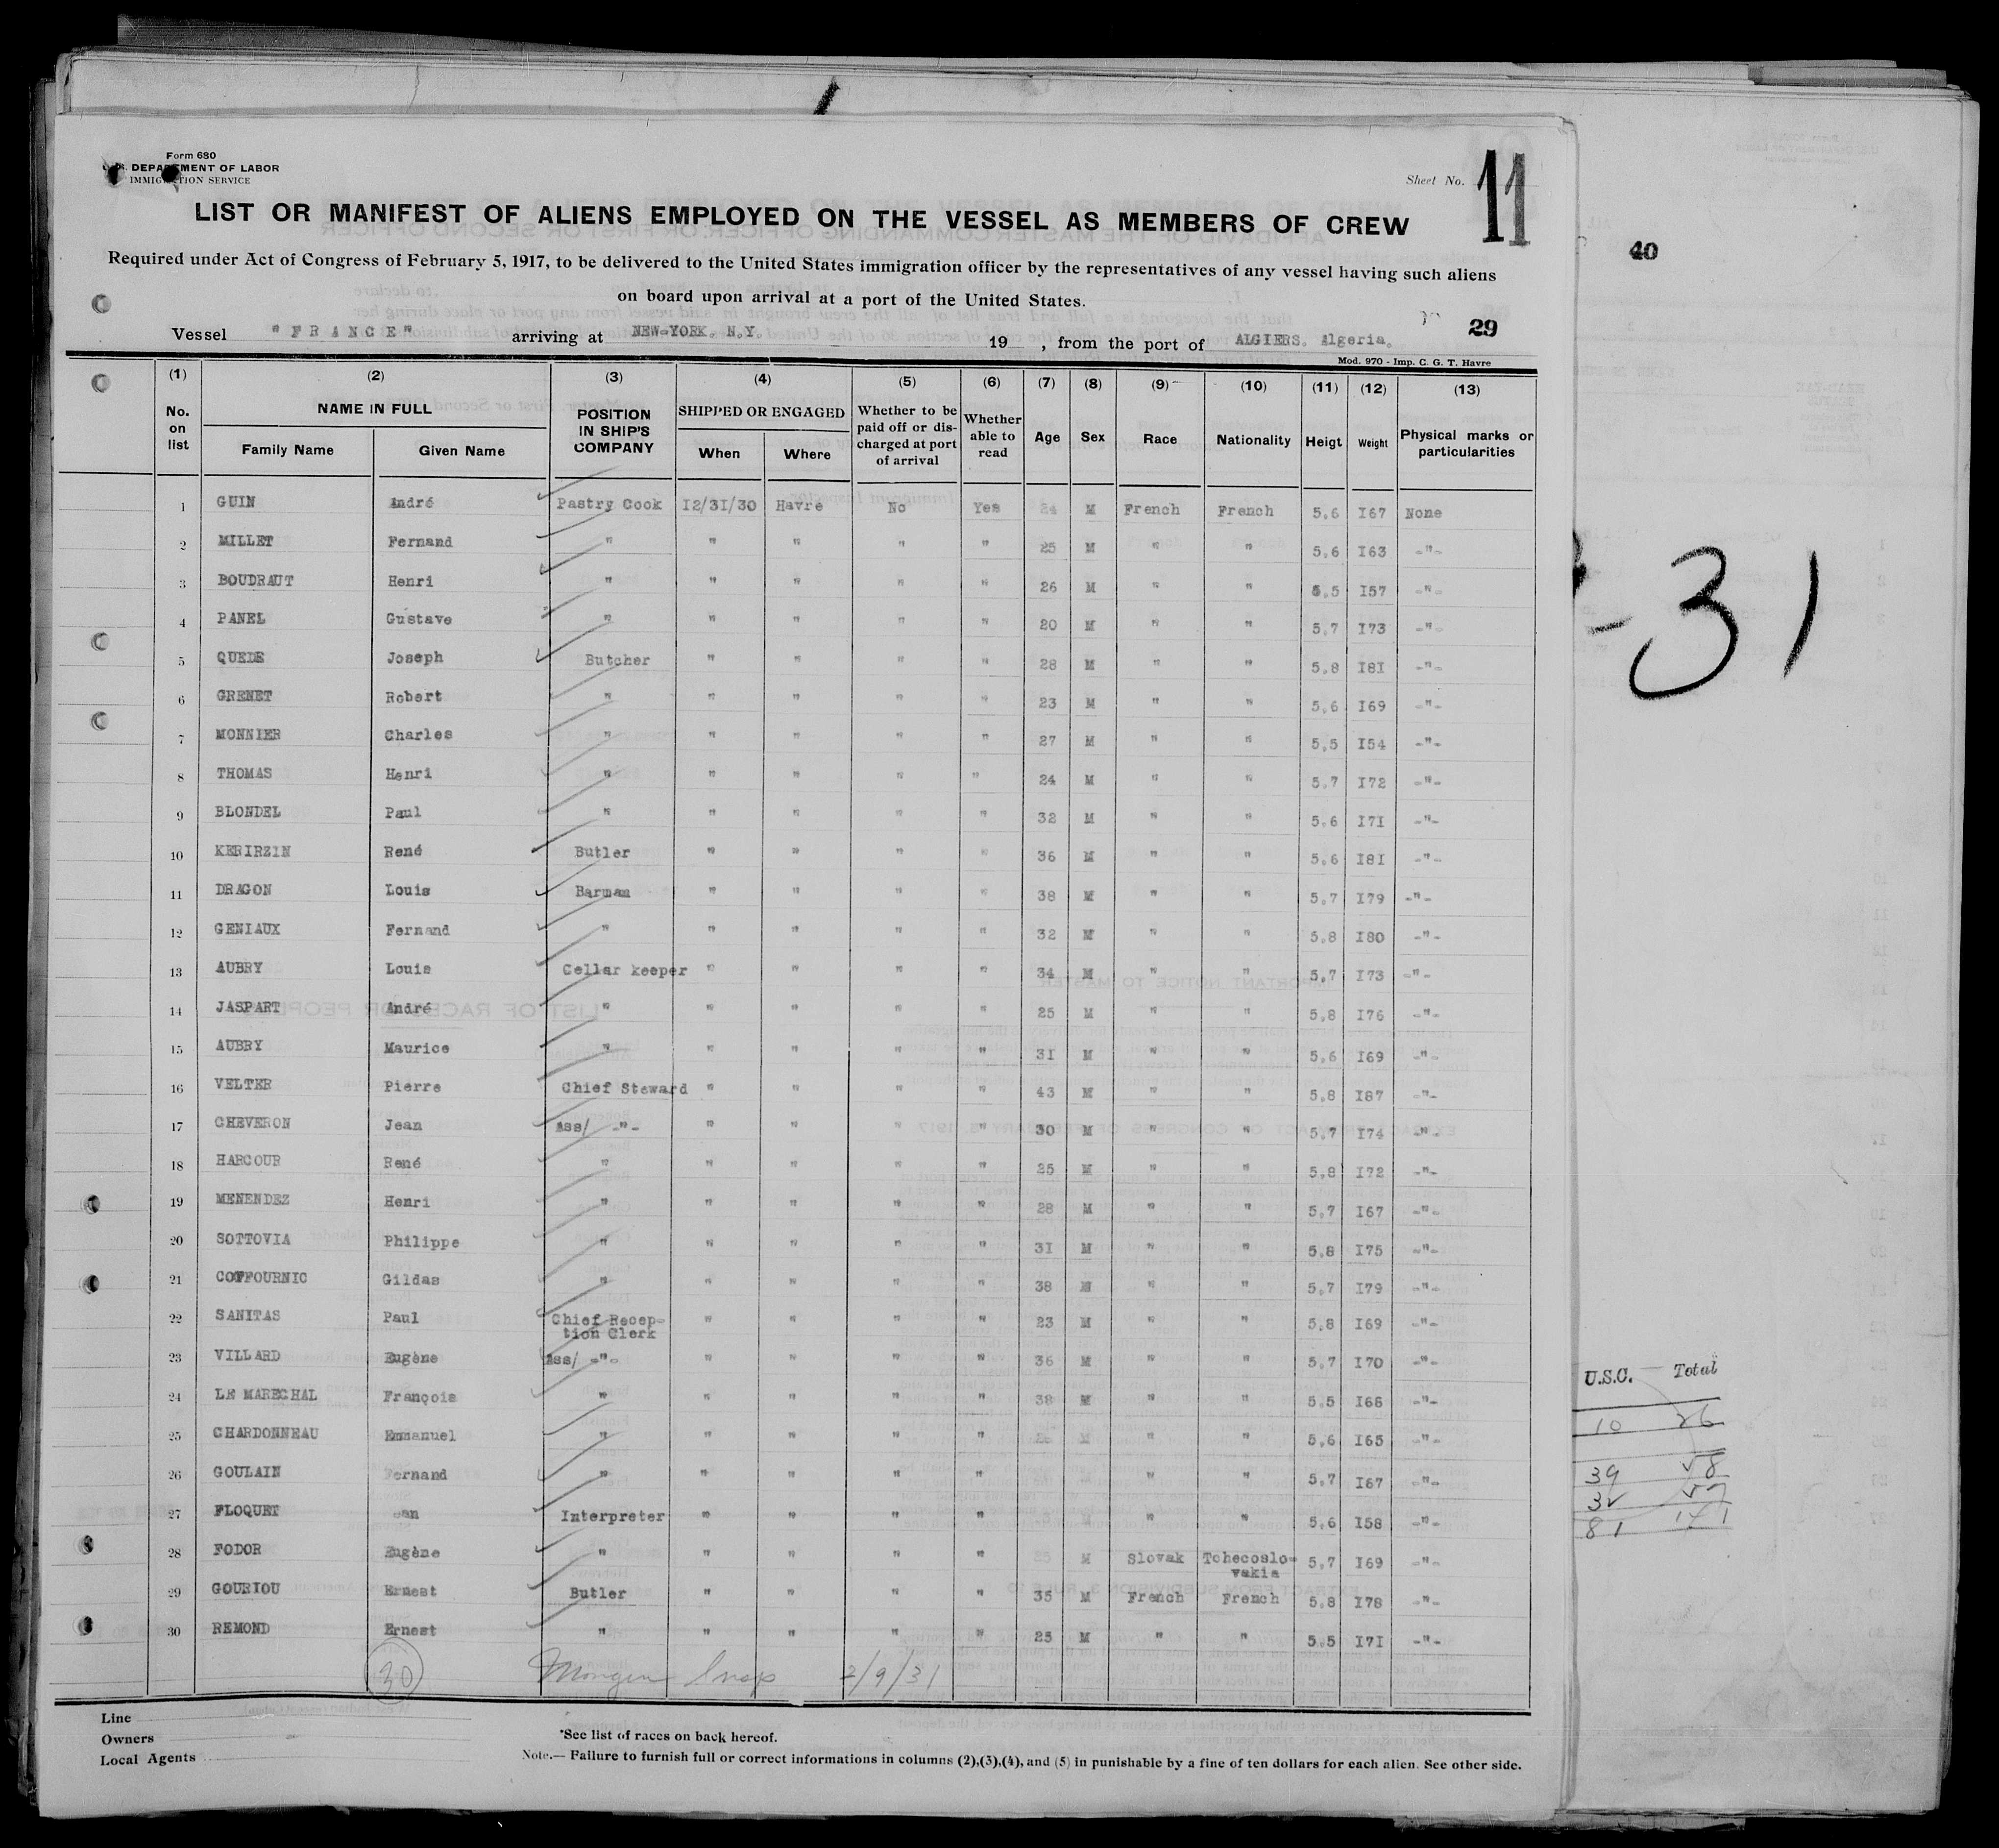 Form 680
DEPARTMENT OF LABOR
IMMIGRATION SERVICE
Sheet No. 11
LIST OR MANIFEST OF ALIENS EMPLOYED ON THE VESSEL AS MEMBERS OF CREW
Required under Act of Congress of February 5, 1917, to be delivered to the United States immigration officer by the representatives of any vessel having such aliens
on board upon arrival at a port of the United States.
40
29
Vessel "FRANCE" arriving at NEW-YORK. N.Y. 19 , from the port of ALGIERS. Algeria.
Mod. 970 - Imp. C. G. T. Havre
(1) (2) (3) (4) (5) (6) (7) (8) (9) (10) (11) (12) (13)
No. on list NAME IN FULL Family Name Given Name POSITION IN SHIP'S COMPANY SHIPPED OR ENGAGED When Where Whether to be paid off or discharged at port of arrival Whether able to read Age Sex Race Nationality Heigt Weight Physical marks or particularities
1 GUIN André Pastry Cook 12/31/30 Havre No Yes 24 M French French 5.6 I67 None
2 MILLET Fernand " " " " " 25 M " " 5.6 I63 -"-
3 BOUDRAUT Henri " " " " " 26 M " " 5.5 I57 -"-
4 PANEL Gustave " " " " " 20 M " " 5.7 I73 -"-
5 QUEDE Joseph Butcher " " " " 28 M " " 5.8 I8I -"-
6 GRENET Robert " " " " " 23 M " " 5.6 I69 -"-
7 MONNIER Charles " " " " " 27 M " " 5.5 I54 -"-
8 THOMAS Henri " " " " " 24 M " " 5.7 I72 -"-
9 BLONDEL Paul " " " " " 32 M " " 5.6 I7I -"-
10 KERIRZIN René Butler " " " " 36 M " " 5.6 I8I -"-
11 DRAGON Louis Barman " " " " 38 M " " 5.7 I79 -"-
12 GENIAUX Fernand " " " " " 32 M " " 5.8 I80 -"-
13 AUBRY Louis Cellar keeper " " " " 34 M " " 5.7 I73 -"-
14 JASPART André " " " " " 25 M " " 5.8 I76 -"-
15 AUBRY Maurice " " " " " 3I M " " 5.6 I69 -"-
16 VELTER Pierre Chief Steward " " " " 43 M " " 5.8 I87 -"-
17 CHEVERON Jean Ass/ -"- " " " " 30 M " " 5.7 I74 -"-
18 HARCOUR René " " " " " 25 M " " 5.8 I72 -"-
19 MENENDEZ Henri " " " " " 28 M " " 5.7 I67 -"-
20 SOTTOVIA Philippe " " " " " 3I M " " 5.8 I75 -"-
21 COFFOURNIC Gildas " " " " " 38 M " " 5.7 I79 -"-
22 SANITAS Paul Chief Reception Clerk " " " " 23 M " " 5.8 I69 -"-
23 VILLARD Eugène Ass/ -"- " " " " 36 M " " 5.7 I70 -"-
24 LE MARECHAL François " " " " " 38 M " " 5.5 I66 -"-
25 CHARDONNEAU Emmanuel " " " " " M " " 5.6 I65 -"-
26 GOULAIN Fernand " " " " " " " 5.7 I67 -"-
27 FLOQUET Interpreter " " " " M " " 5.6 I58 -"-
28 FODOR Eugène " " " " " M Slovak Tchecoslo-vakia 5.7 I69 -"-
29 GOURIOU Ernest Butler " " " " 35 M French French 5.8 I78 -"-
30 REMOND Ernest " " " " " 25 M " " 5.5 I7I -"-
30 2/9/31
Line
Owners
Local Agents
*See list of races on back hereof.
Note.— Failure to furnish full or correct informations in columns (2),(3),(4), and (5) in punishable by a fine of ten dollars for each alien. See other side.
-31
U.S.C. Total
10 26
39
81